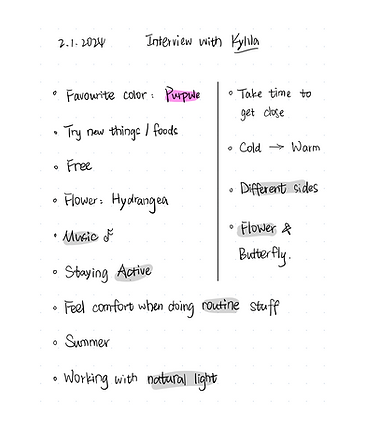 2.1.2024 Interview with Kylila
• Favourite color: Purpule
• Try new things / foods
• Free
• Flower: Hydrangea
• Music ♬
• Staying Active
• Feel comfort when doing routine stuff
• Summer
• Working with natural light
• Take time to
get close
• Cold → Warm
• Different sides
• Flower &
Butterfly.